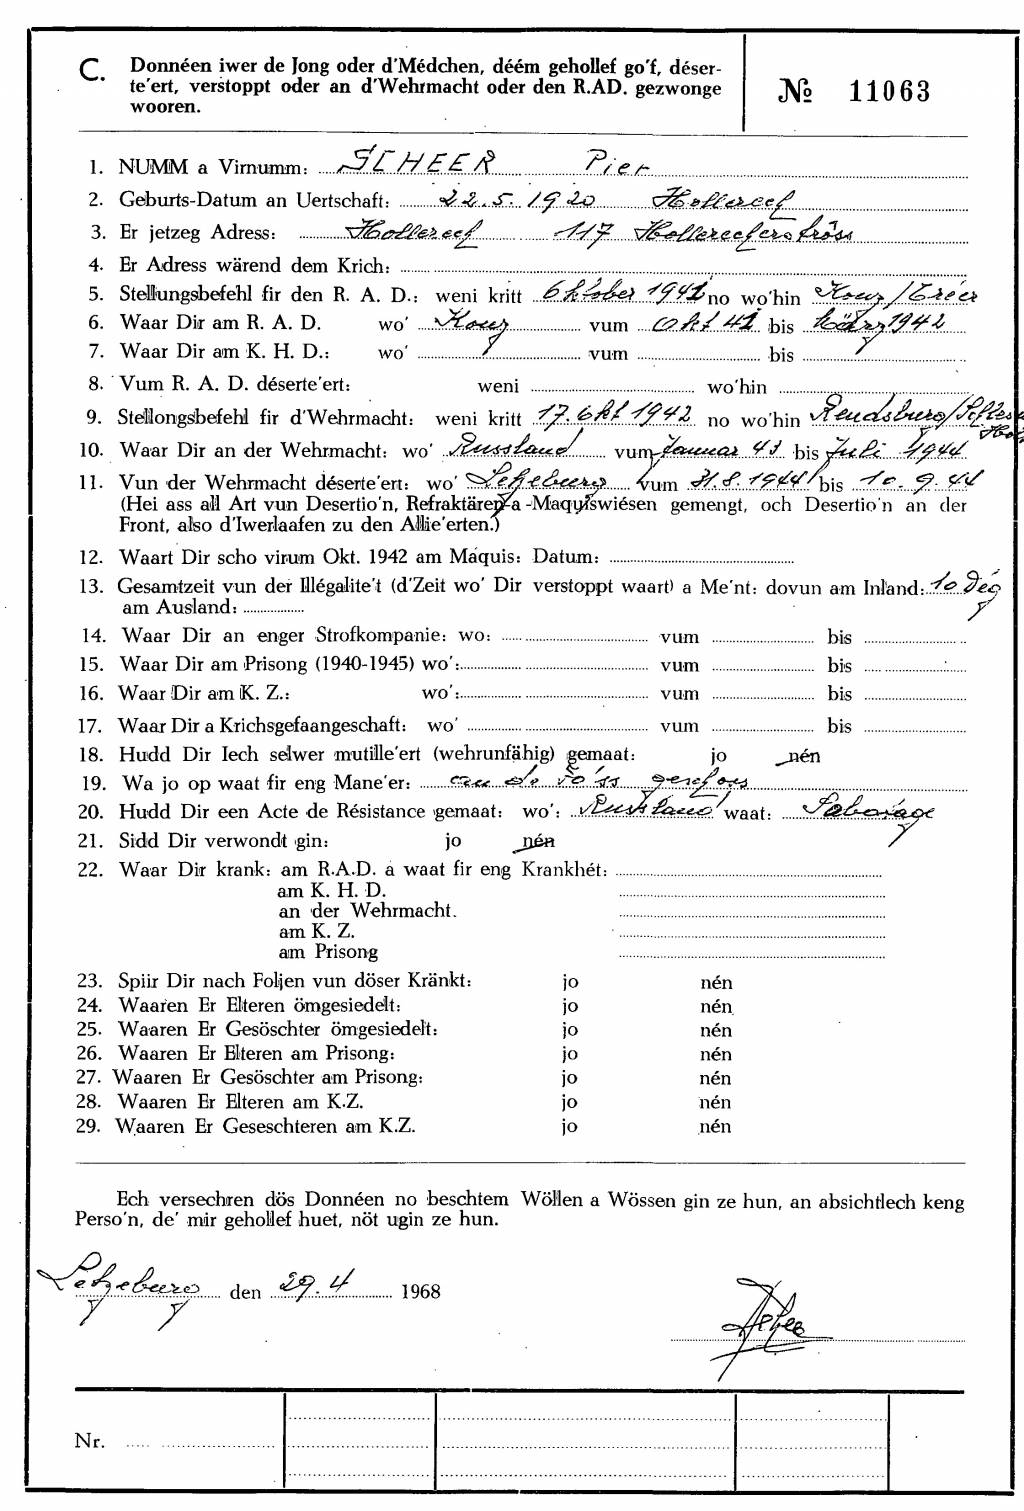 C. Donnéen iwer de Jong oder d'Médchen, déém gehollef go'f, déser-
te'ert, verstoppt oder an d'Wehrmacht oder den R.AD. gezwonge
wooren.
№ 11063
1. NUMM a Virnumm: SCHEER Pier
2. Geburts-Datum an Uertschaft: 22.5.1920 Hollerech
3. Er jetzeg Adress: Hollerech 117 Hollerecherströss
4. Er Adress wärend dem Krich:
5. Stellungsbefehl fir den R. A. D.: weni kritt Oktober 1941 no wo'hin Konz/Tréer
6. Waar Dir am R. A. D. wo' Konz vum Okt 41 bis März 1942
7. Waar Dir am K. H. D.: wo' vum bis
8. Vum R. A. D. déserte'ert: weni wo'hin
9. Stellongsbefehl fir d'Wehrmacht: weni kritt 17. Okt 1942 no wo'hin Rendsburg/Schlesw
Hol
10. Waar Dir an der Wehrmacht: wo' Russland vum Januar 43 bis Juli 1944
11. Vun der Wehrmacht déserte'ert: wo' Letzeburg vum 31.8.1944 bis 10.9.44
(Hei ass all Art vun Desertio'n, Refraktären-a -Maquiswiésen gemengt, och Desertio'n an der
Front, also d'Iwerlaafen zu den Allie'erten.)
12. Waart Dir scho virum Okt. 1942 am Maquis: Datum:
13. Gesamtzeit vun der Illégalite't (d'Zeit wo' Dir verstoppt waart) a Me'nt: dovun am Inland: 10 Deg
am Ausland:
14. Waar Dir an enger Strofkompanie: wo: vum bis
15. Waar Dir am Prisong (1940-1945) wo': vum bis
16. Waar Dir am K. Z.: wo': vum bis
17. Waar Dir a Krichsgefaangeschaft: wo' vum bis
18. Hudd Dir Iech selwer mutille'ert (wehrunfähig) gemaat: jo nén
19. Wa jo op waat fir eng Mane'er: an de Fo'ss geschoss
20. Hudd Dir een Acte de Résistance gemaat: wo': Russland waat: Sabotage
21. Sidd Dir verwondt gin: jo nén
22. Waar Dir krank: am R.A.D. a waat fir eng Krankhét:
am K. H. D.
an der Wehrmacht.
am K. Z.
am Prisong
23. Spiir Dir nach Foljen vun döser Kränkt: jo nén
24. Waaren Er Elteren ömgesiedelt: jo nén
25. Waaren Er Gesöschter ömgesiedelt: jo nén
26. Waaren Er Elteren am Prisong: jo nén
27. Waaren Er Gesöschter am Prisong: jo nén
28. Waaren Er Elteren am K.Z. jo nén
29. Waaren Er Geseschteren am K.Z. jo nén
Ech versechren dös Donnéen no beschtem Wöllen a Wössen gin ze hun, an absichtlech keng
Perso'n, de' mir gehollef huet, nöt ugin ze hun.
Letzeburg den 29.4 1968
Nr.